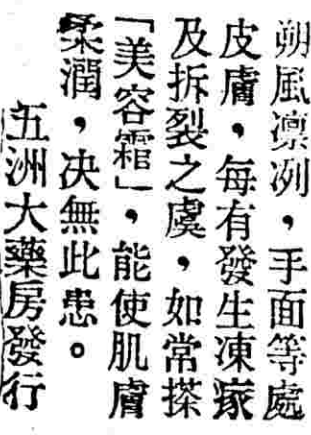 朔風凛冽，手面等處
皮膚，每有發生凍瘃
及拆裂之虞，如常搽
「美容霜」，能使肌膚
柔潤，决無此患。
五洲大藥房發行